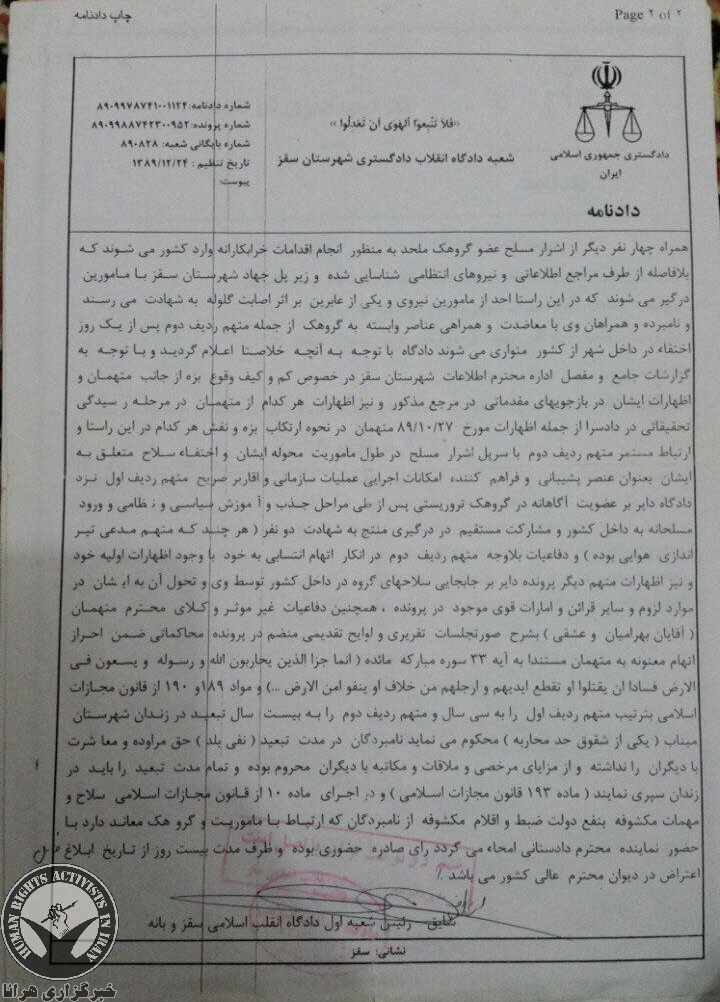 چاپ دادنامه
Page ۲ of ۲
شماره دادنامه: ۸۹۰۹۹۷۸۷۴۱۰۰۱۱۲۴
شماره پرونده: ۸۹۰۹۹۸۸۷۴۲۳۰۰۹۵۲
شماره بایگانی شعبه: ۸۹۰۸۲۸
تاریخ تنظیم: ۱۳۸۹/۱۲/۲۴
پیوست:
«فَلا تَتَّبِعوُا اَلهَوی اَنْ تَعْدِلُوا»
شعبه دادگاه انقلاب دادگستری شهرستان سقز
دادگستری جمهوری اسلامی
ایران
دادنامه
همراه چهار نفر دیگر از اشرار مسلح عضو گروهک ملحد به منظور انجام اقدامات خرابکارانه وارد کشور می شوند که
بلافاصله از طرف مراجع اطلاعاتی و نیروهای انتظامی شناسایی شده و زیر پل جهاد شهرستان سقز با مامورین
درگیر می شوند که در این راستا احد از مامورین نیروی و یکی از عابرین بر اثر اصابت گلوله به شهادت می رسند
و نامبرده و همراهان وی با معاضدت و همراهی عناصر وابسته به گروهک از جمله متهم ردیف دوم پس از یک روز
اختفاء در داخل شهر از کشور متواری می شوند دادگاه با توجه به آنچه خلاصتا اعلام گردید و با توجه به
گزارشات جامع و مفصل اداره محترم اطلاعات شهرستان سقز در خصوص کم و کیف وقوع بزه از جانب متهمان و
اظهارات ایشان در بازجویهای مقدماتی در مرجع مذکور و نیز اظهارات هر کدام از متهمان در مرحله رسیدگی
تحقیقاتی در دادسرا از جمله اظهارات مورخ ۸۹/۱۰/۲۷ متهمان در نحوه ارتکاب بزه و نقش هر کدام در این راستا و
ارتباط مستمر متهم ردیف دوم با سرپل اشرار مسلح در طول ماموریت محوله ایشان و اختفاء سلاح متعلق به
ایشان بعنوان عنصر پشیبانی و فراهم کننده امکانات اجرایی عملیات سازمانی و اقاریر صریح متهم ردیف اول نزد
دادگاه دایر بر عضویت آگاهانه در گروهک تروریستی پس از طی مراحل جذب و آموزش سیاسی و نظامی و ورود
مسلحانه به داخل کشور و مشارکت مستقیم در درگیری منتج به شهادت دو نفر ( هر چند که متهم مدعی تیر
اندازی هوایی بوده ) و دفاعیات بلاوجه متهم ردیف دوم در انکار اتهام انتسابی به خود با وجود اظهارات اولیه خود
و نیز اظهارات متهم دیگر پرونده دایر بر جابجایی سلاحهای گروه در داخل کشور توسط وی و تحول آن به ایشان در
موارد لزوم و سایر قرائن و امارات قوی موجود در پرونده ، همچنین دفاعیات غیر موثر و کلای محترم متهمان
( آقایان بهرامیان و عشقی ) بشرح صورتجلسات تقریری و لوایح تقدیمی منضم در پرونده محاکماتی ضمن احراز
اتهام معنونه به متهمان مستندا به آیه ۳۳ سوره مبارکه مائده ( انما جزا الذین یحاربون الله و رسوله و یسعون فی
الارض فسادا ان یقتلوا او تقطع ایدیهم و ارجلهم من خلاف او ینفو امن الارض ...) و مواد ۱۸۹و ۱۹۰ از قانون مجازات
اسلامی بترتیب متهم ردیف اول را به سی سال و متهم ردیف دوم را به بیست سال تبعید در زندان شهرستان
میناب ( یکی از شقوق حد محاربه ) محکوم می نماید نامبردگان در مدت تبعید ( نفی بلد ) حق مراوده و معاشرت
با دیگران را نداشته و از مزایای مرخصی و ملاقات و مکاتبه با دیگران محروم بوده و تمام مدت تبعید را باید در
زندان سپری نمایند ( ماده ۱۹۳ قانون مجازات اسلامی ) و در اجرای ماده ۱۰ از قانون مجازات اسلامی سلاح و
مهمات مکشوفه بنفع دولت ضبط و اقلام مکشوفه از نامبردگان که ارتباط با ماموریت و گرو هک معاند دارد با
حضور نماینده محترم دادستانی امحاء می گردد رای صادره حضوری بوده و ظرف مدت بیست روز از تاریخ ابلاغ
اعتراض در دیوان محترم عالی کشور می باشد ./
شایق - رئیس شعبه اول دادگاه انقلاب اسلامی سقز و بانه
نشانی: سقز
HUMAN RIGHTS ACTIVISTS IN IRAN
خبرگزاری هرانا